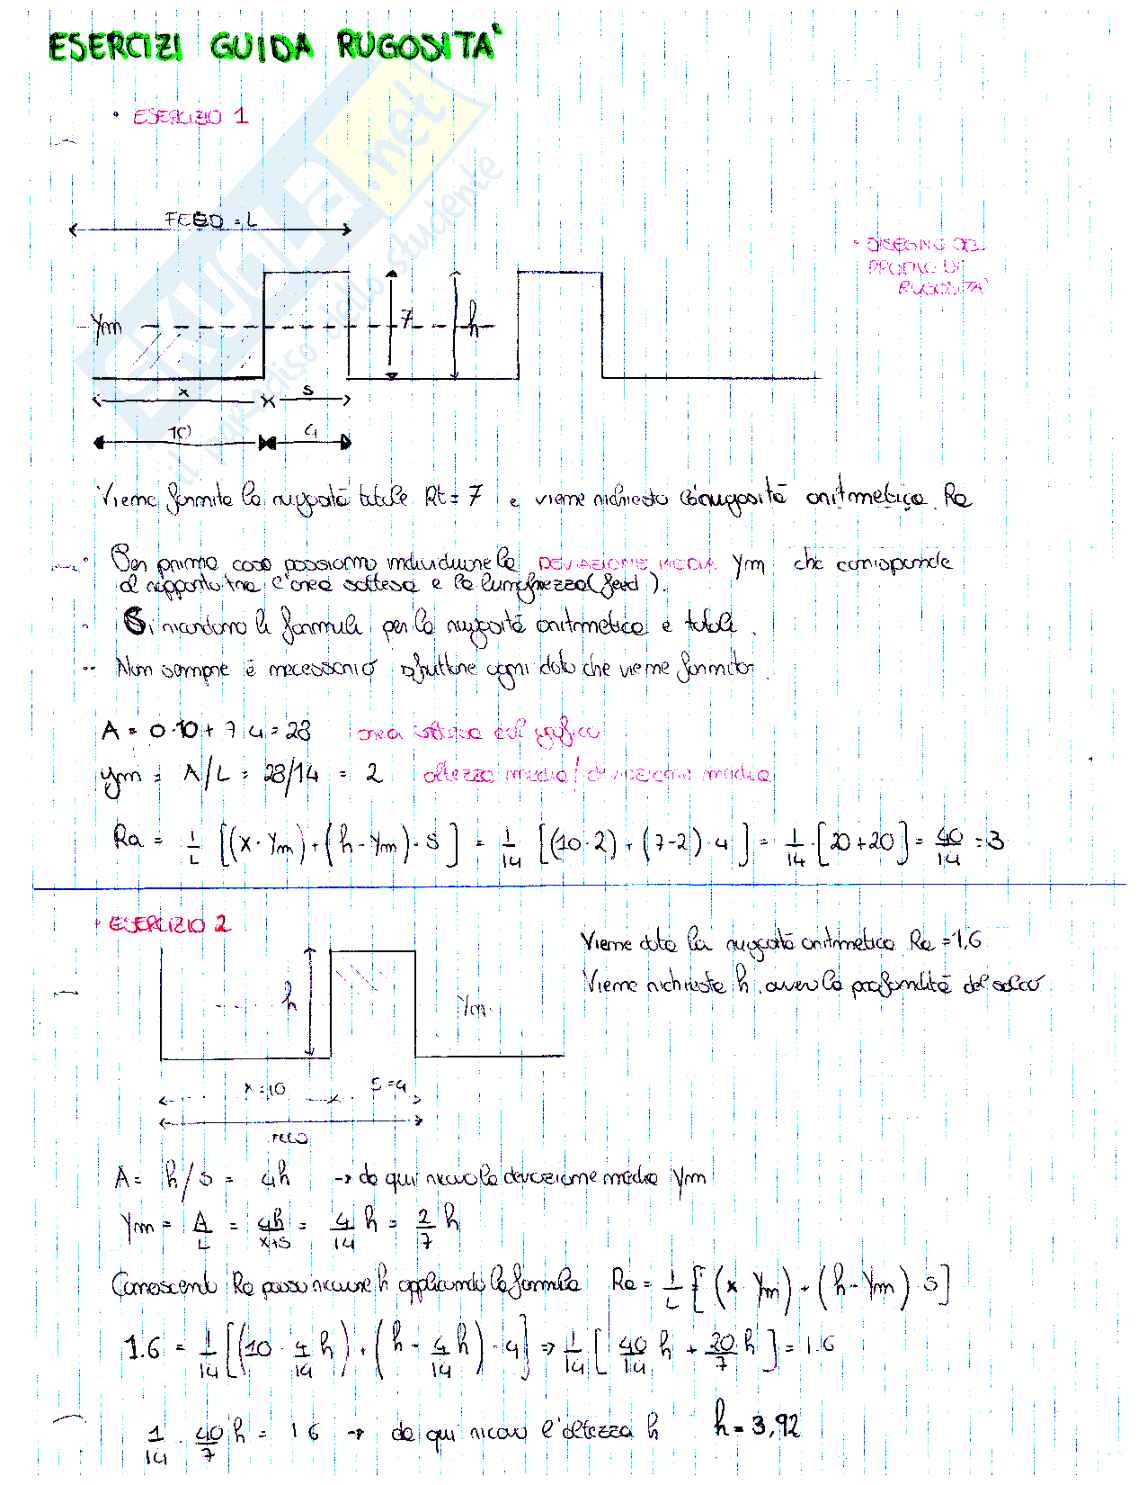 ESERCIZI GUIDA RUGOSITA'
• ESERCIZIO 1
FEED = L
• DISEGNO DEL
PROFILO DI
RUGOSITA'
Ym
7
h
x
s
10
4
Viene fornita la rugosità totale Rt = 7 e viene richiesta la rugosità aritmetica Ra
Per prima cosa possiamo individuare la DEVIAZIONE MEDIA Ym che corrisponde
al rapporto tra l'area sottesa e la lunghezza (feed).
Si ricordano le formule per la rugosità aritmetica e totale.
Non sempre è necessario sfruttare ogni dato che viene fornito
A = 0·10 + 7·4 = 28 area sottesa dal grafico
ym = A/L = 28/14 = 2 altezza media / deviazione media
Ra = 1/L [(x·Ym) + (h-Ym)·s] = 1/14 [(10·2) + (7-2)·4] = 1/14 · [20+20] = 40/14 = 3
• ESERCIZIO 2
Viene data la rugosità aritmetica Ra = 1,6
Viene richiesta h, ovvero la profondità del solco
h
Ym
x = 10
s = 4
FEED
A = h/s = 4h → da qui ricavo la deviazione media Ym
Ym = A/L = 4h/x+s = 4/14 h = 2/7 h
Conoscendo Ra posso ricavare h applicando la formula Ra = 1/L [(x·Ym) + (h-Ym)·s]
1.6 = 1/14 [(10 · 4/14 h) + (h - 4/14 h) · 4] → 1/14 [40/14 h + 20/7 h] = 1.6
1/14 · 40/7 h = 1.6 → da qui ricavo l'altezza h h = 3,92
il paradiso dello studente